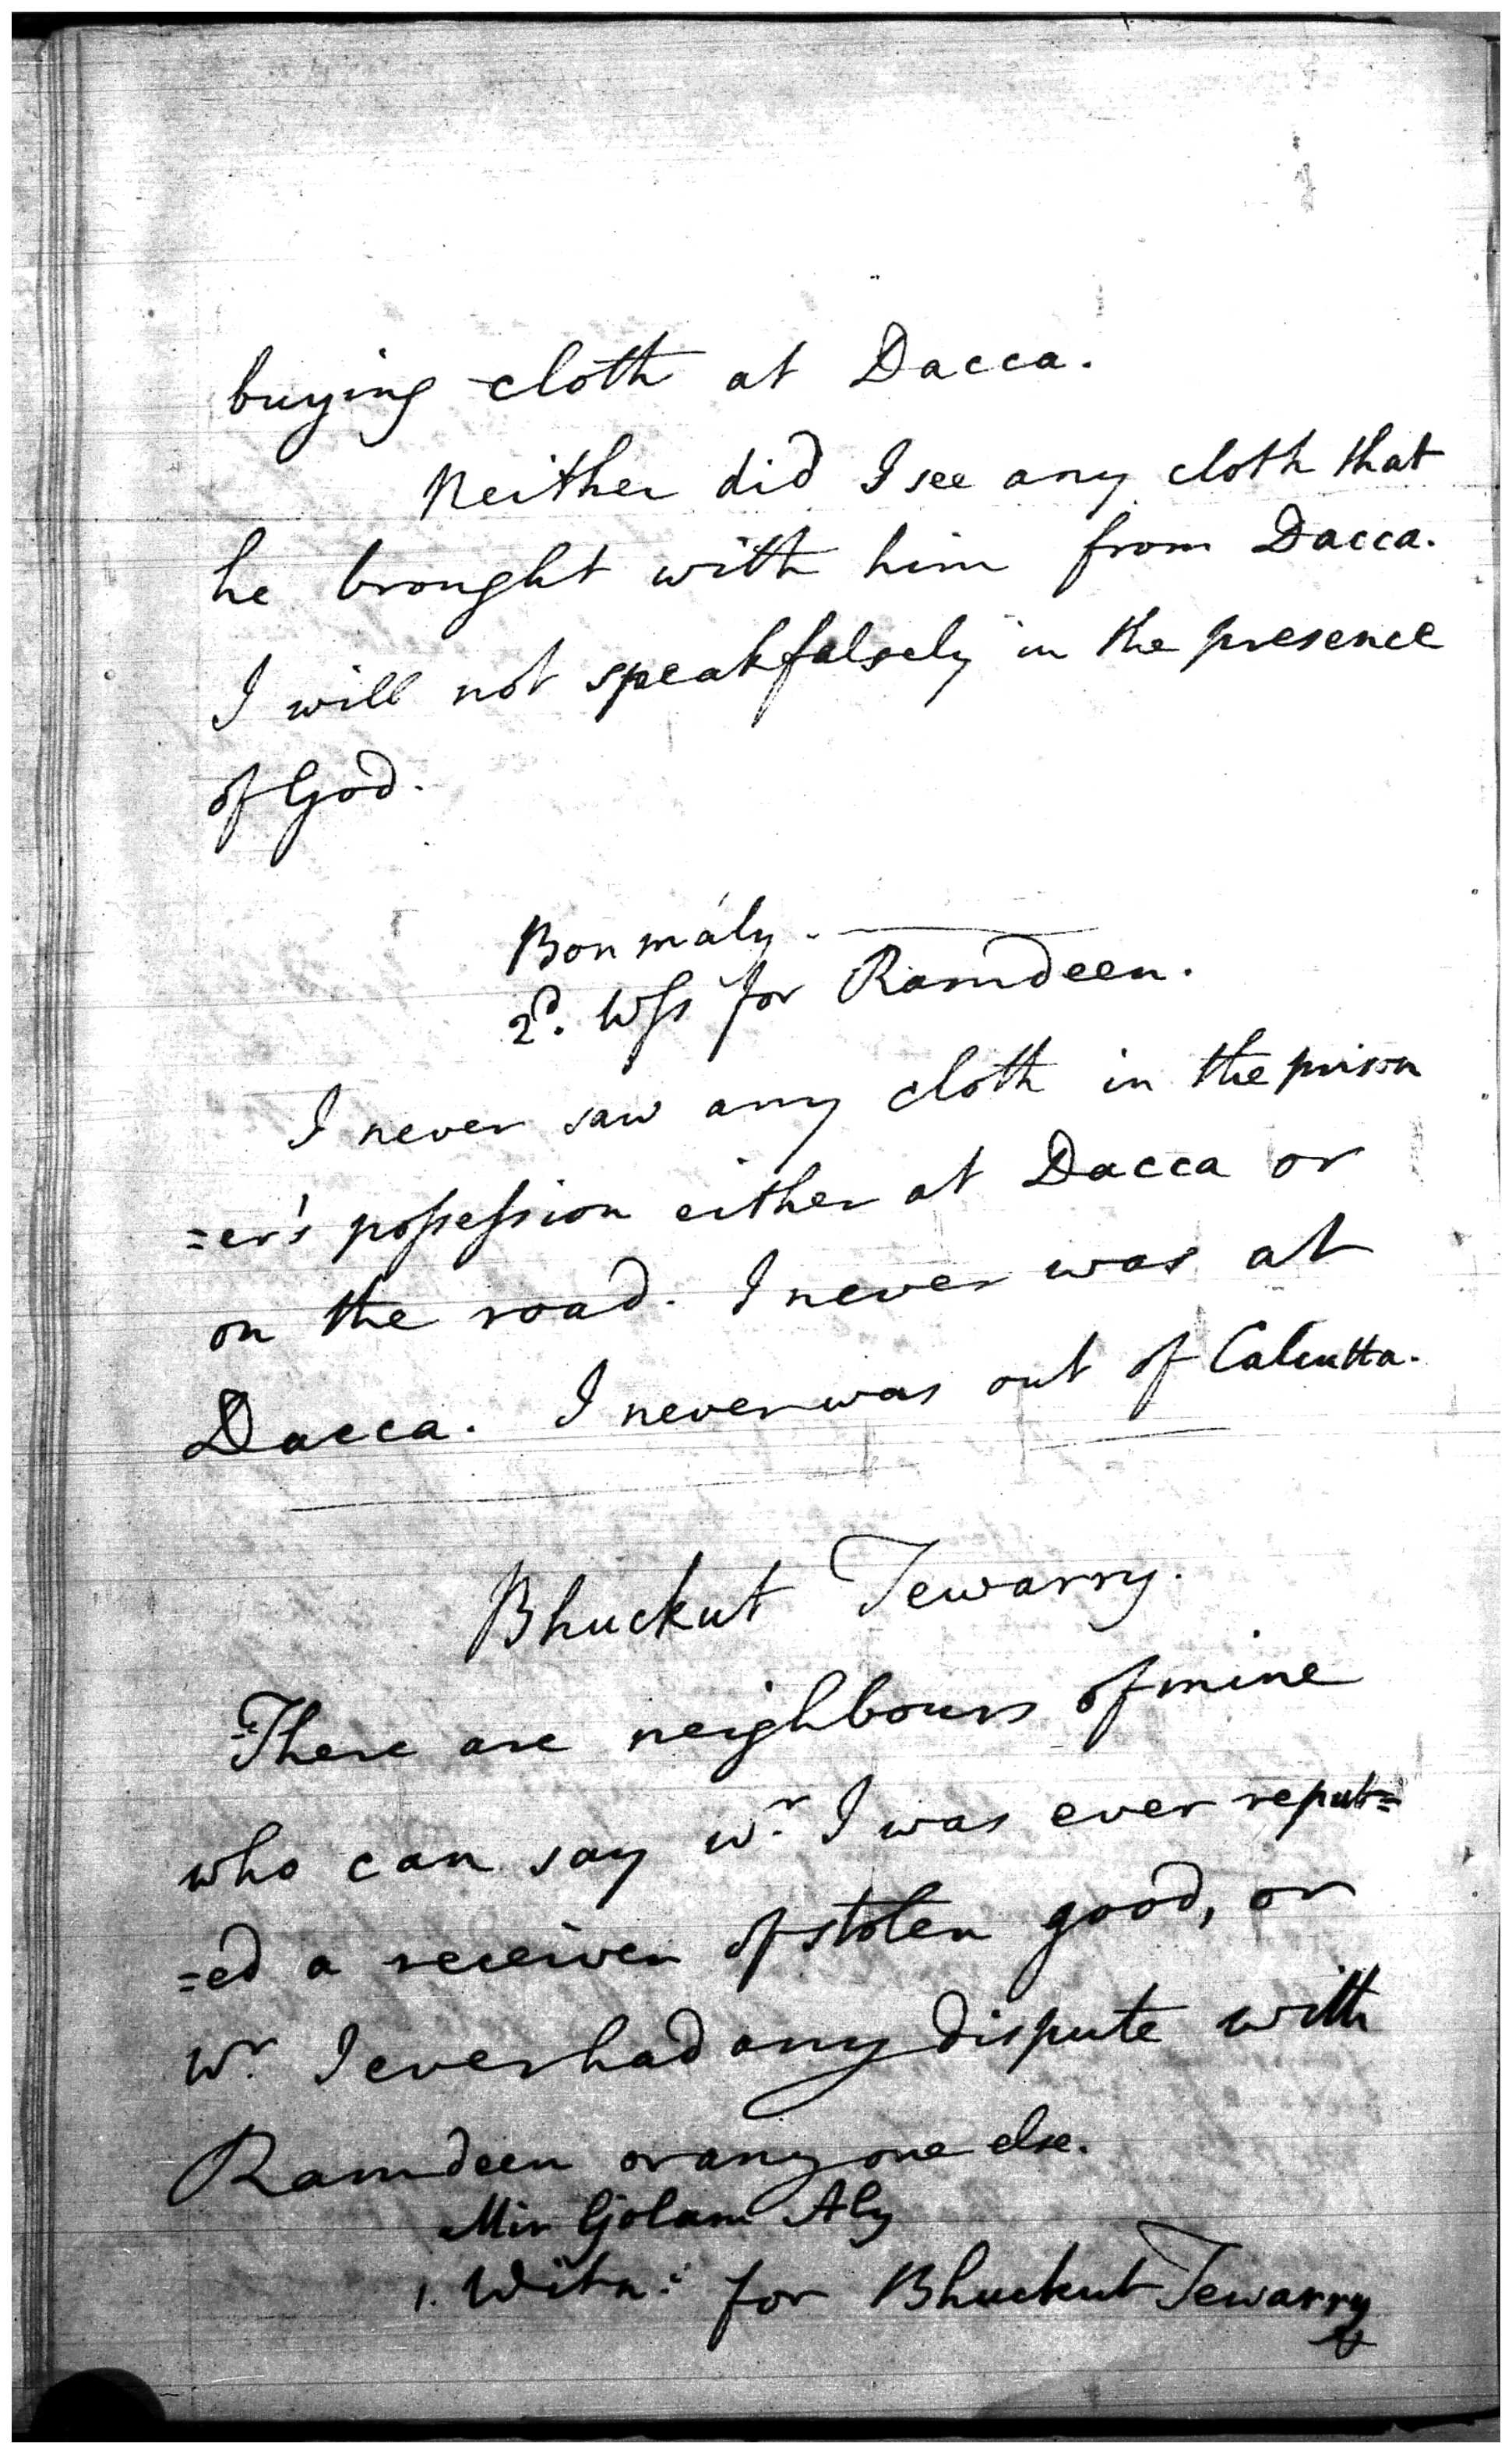 buying cloth at Dacca.
Neither did I see any cloth that
he brought with him from Dacca.
I will not speak falsely in the presence
of God.
Bonmály.
2d. Wss for Ramdeen.
I never saw any cloth in the prison
=er's possession either at Dacca or
on the road. I never was at
Dacca. I never was out of Calcutta.
Bhuckut Tewarry.
There are neighbours of mine
who can say wr. I was ever reput=
=ed a receiver of stolen good, or
wr. I ever had any dispute with
Ramdeen or any one else.
Mir Golam Aly
1. Witn: for Bhuckut Tewarry